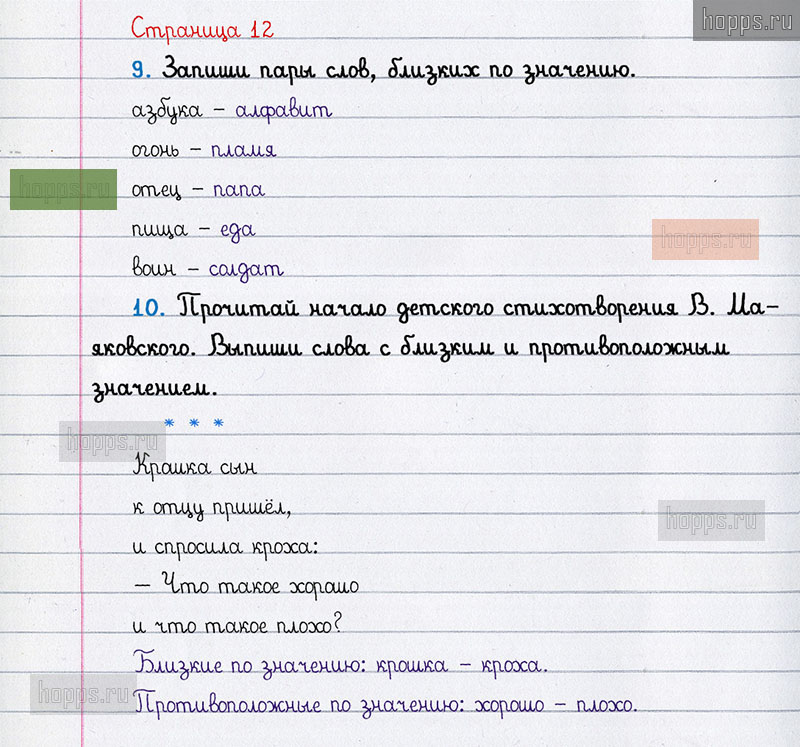 hopps.ru
Страница 12
9. Запиши пары слов, близких по значению.
азбука – алфавит
огонь – пламя
hopps.ru
отец – папа
пища – еда
hopps.ru
воин – солдат
10. Прочитай начало детского стихотворения В. Ма-
яковского. Выпиши слова с близким и противоположным
значением.
* * *
hopps.ru
Крошка сын
к отцу пришёл,
hopps.ru
и спросила кроха:
– Что такое хорошо
и что такое плохо?
Близкие по значению: крошка – кроха.
hopps.ru
Противоположные по значению: хорошо – плохо.